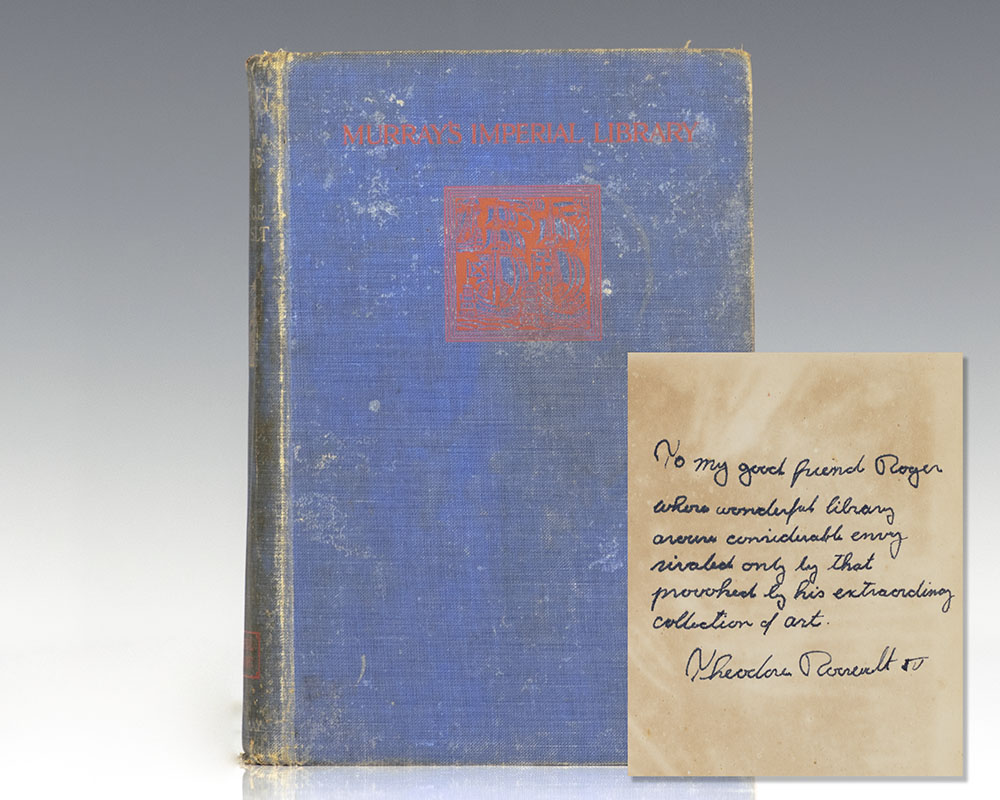 MURRAY'S IMPERIAL LIBRARY
To my good friend Roger
whose wonderful library
arouses considerable envy
rivaled only by that
provoked by his extraordinary
collection of art.
Theodore Roosevelt IV